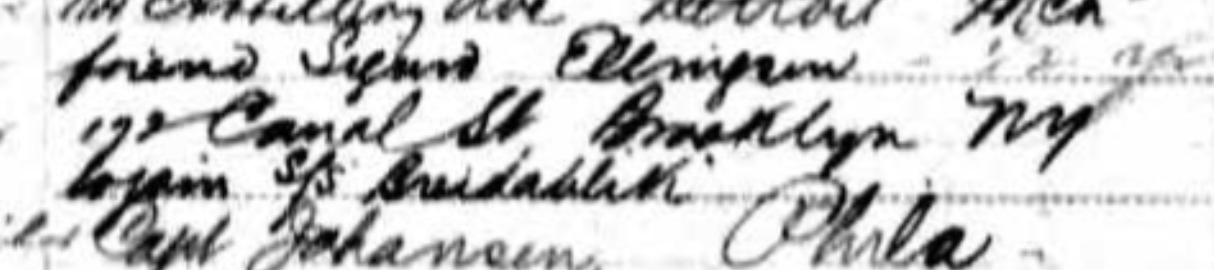 Ave Detroit Mich
friend Sigurd Ellingsen
172 Canal St Brooklyn NY
to join S/S Breidablik
Capt Johansen, Phila